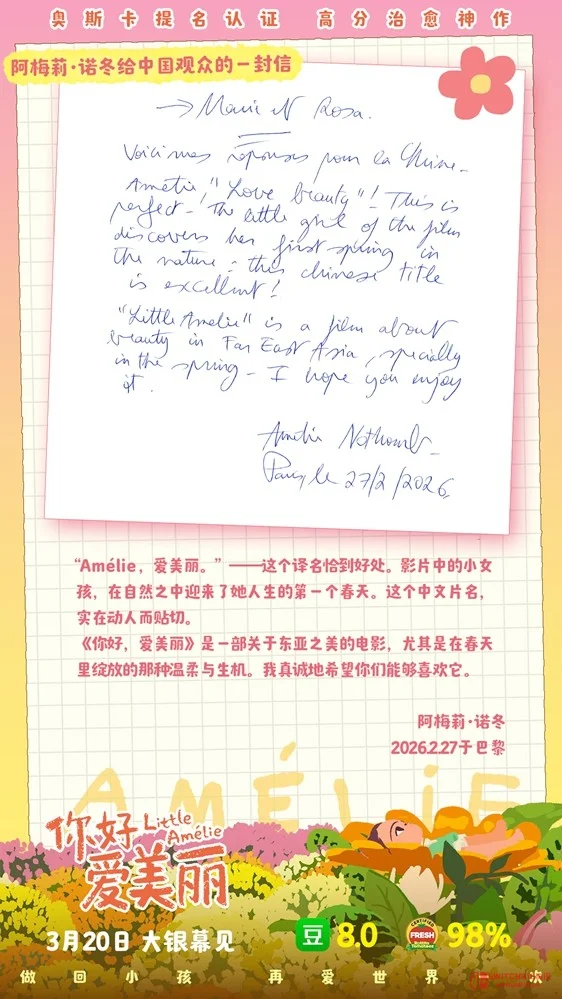 奥斯卡提名认证 高分治愈神作
阿梅莉·诺冬给中国观众的一封信
→ Marie et Rosa.
Voici mes réponses pour la Chine.
Amélie "Love beauty"! This is
perfect! The little girl of the film
discovers her first spring in
the nature: this chinese title
is excellent!
"Little Amélie" is a film about
beauty in Far East Asia, specially
in the spring - I hope you enjoy
it.
Amélie Nothomb
Paris, le 27/2/2026
“Amélie，爱美丽。”——这个译名恰到好处。影片中的小女
孩，在自然之中迎来了她人生的第一个春天。这个中文片名，
实在动人而贴切。
《你好，爱美丽》是一部关于东亚之美的电影，尤其是在春天
里绽放的那种温柔与生机。我真诚地希望你们能够喜欢它。
阿梅莉·诺冬
2026.2.27于巴黎
AMÉLiE
你好
Little
Amélie
爱美丽
3月20日 大银幕见
豆 8.0
FRESH 98%
做回小孩 再爱世界